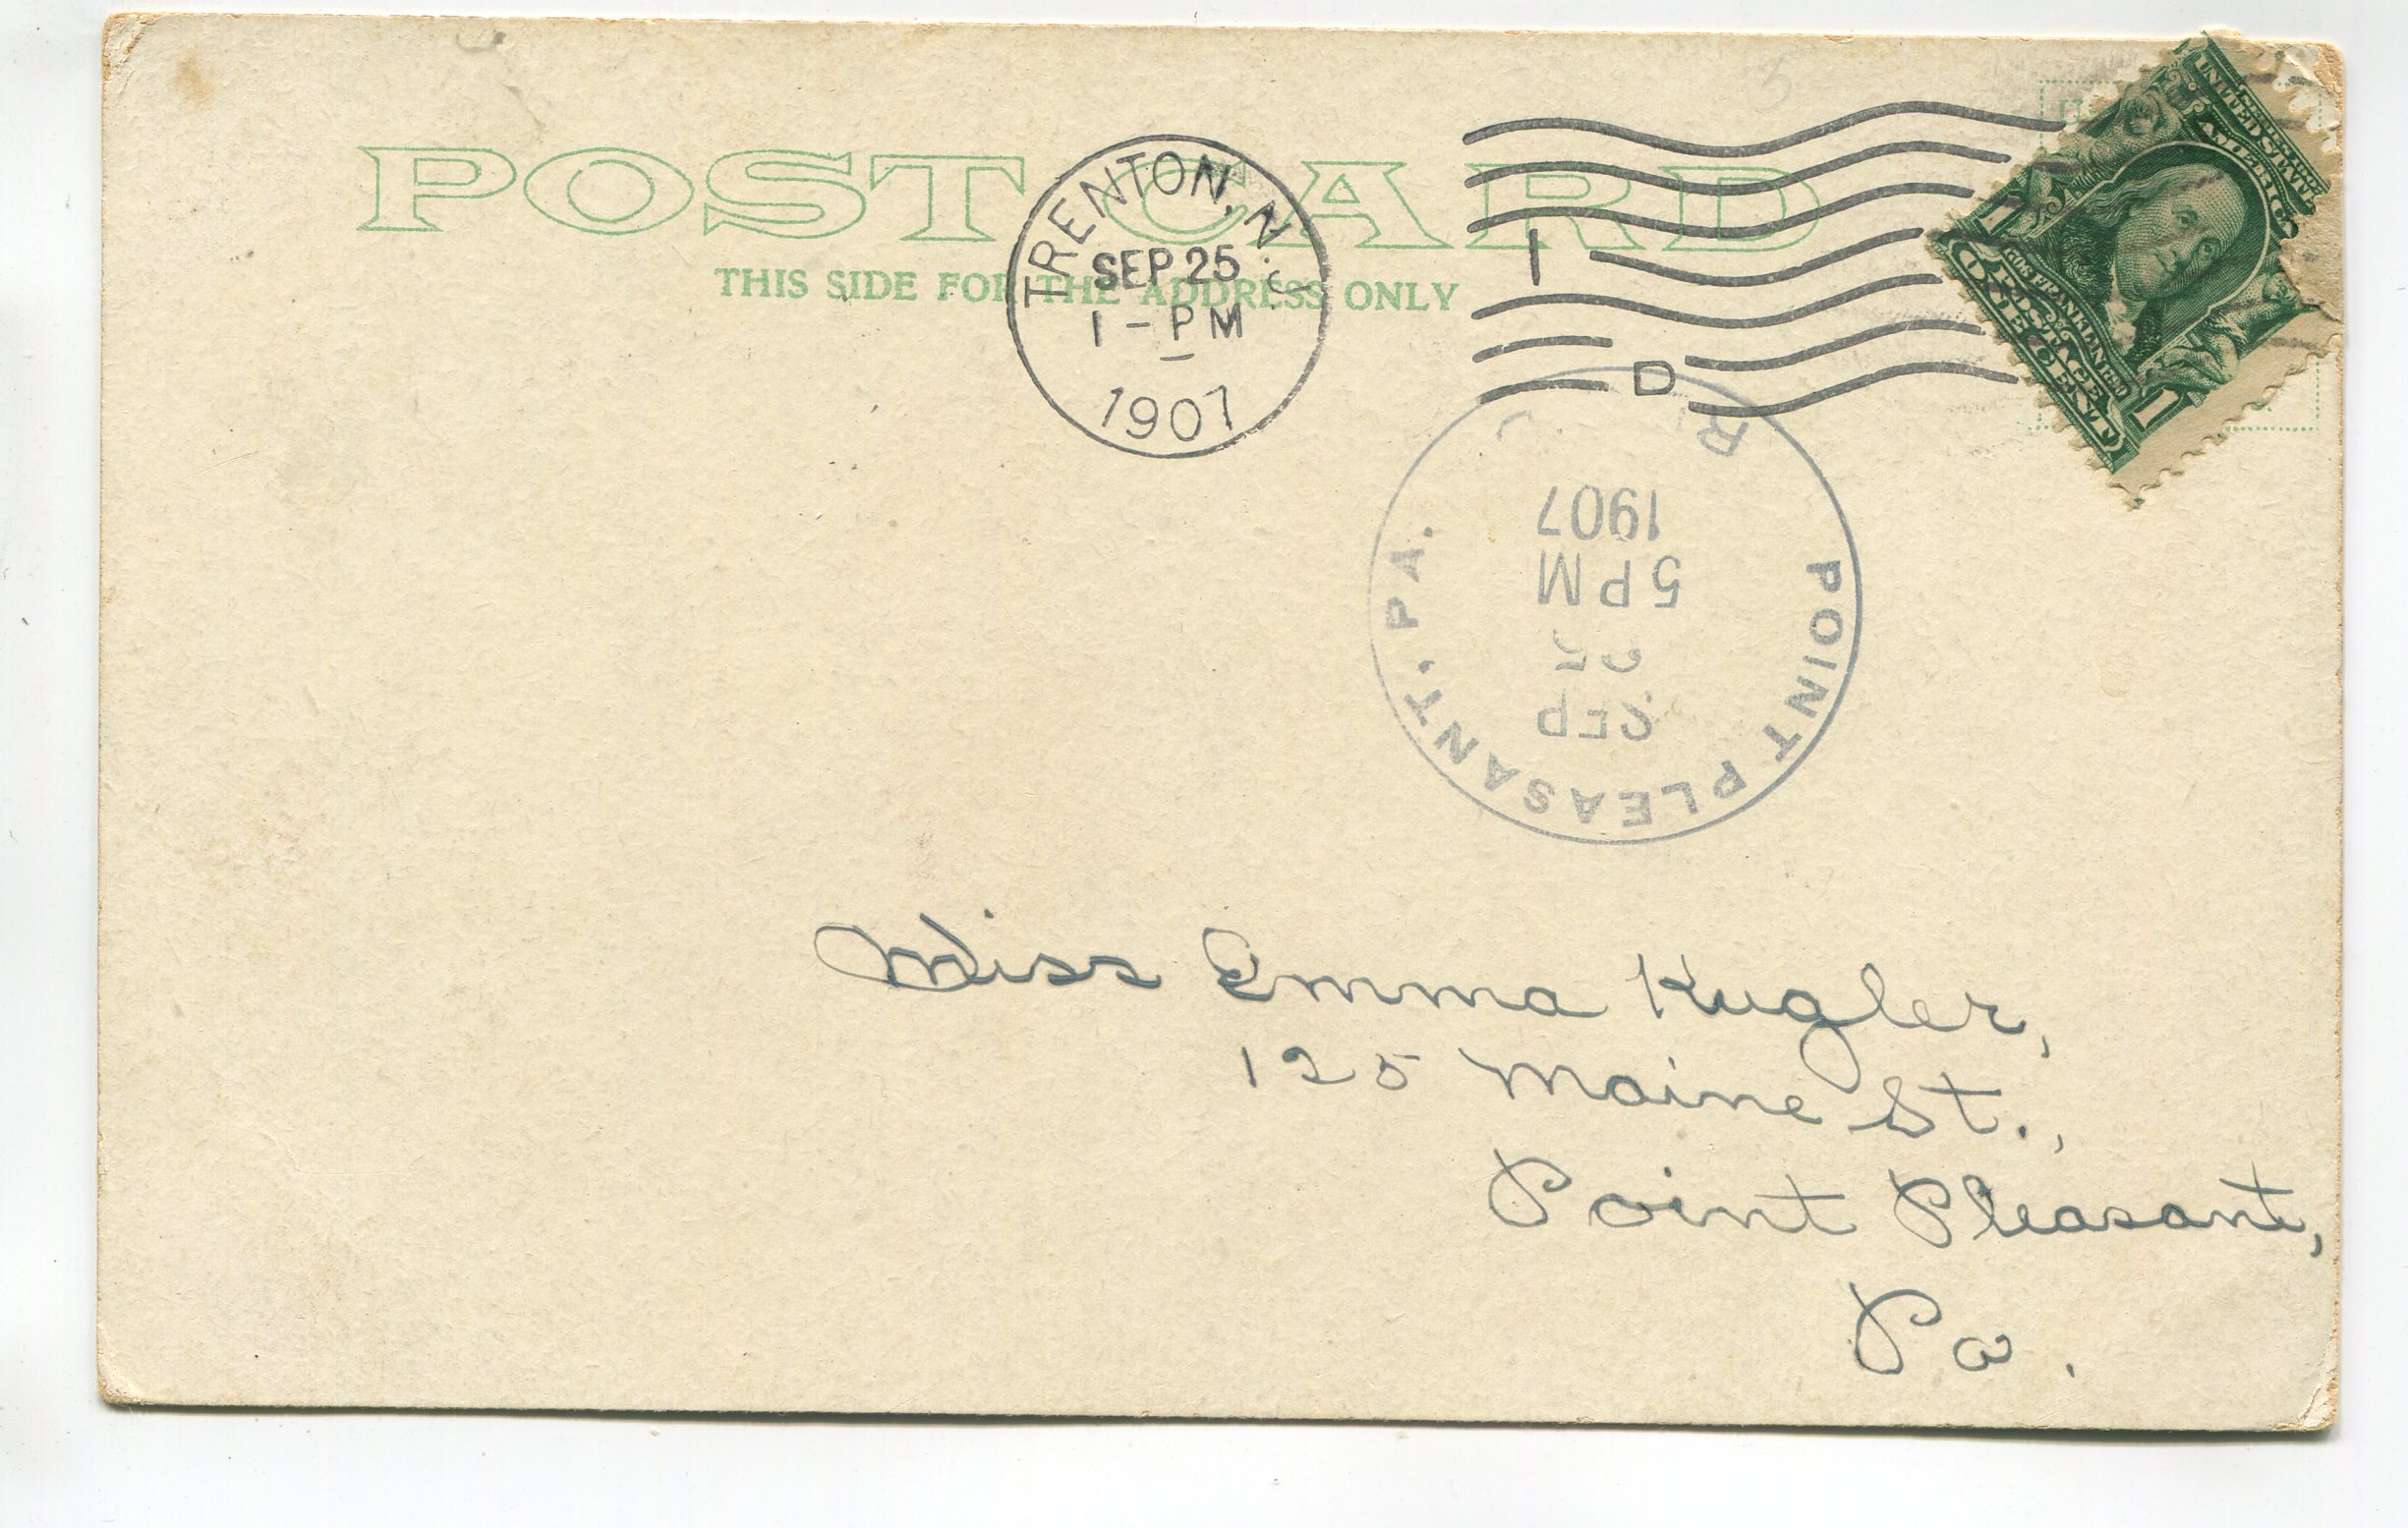 POST CARD
THIS SIDE FOR THE ADDRESS ONLY
TRENTON, N.J.
SEP 25
1 - PM
1907
1
D
UNITED STATES OF AMERICA
1706 FRANKLIN 1790
POSTAGE
ONE CENT
1
1
R
POINT PLEASANT, PA.
SEP
25
5 PM
1907
Miss Emma Kugler,
125 Maine St.,
Point Pleasant,
Pa.